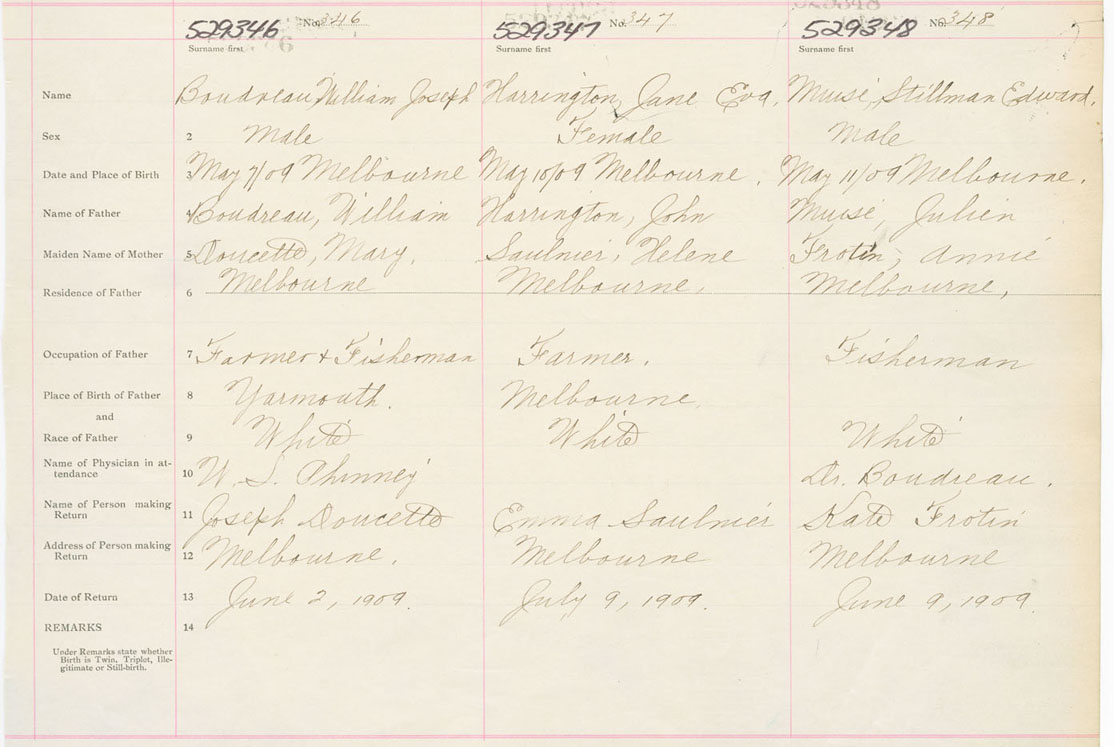 529346 No. 346 529347 No. 347 529348 No. 348
Surname first Surname first Surname first
Name Boudreau, William Joseph Harrington, Jane Eva. Muise, Stillman Edward.
Sex 2 Male Female Male
Date and Place of Birth 3 May 7/09 Melbourne May 10/09 Melbourne. May 11/09 Melbourne.
Name of Father 4 Boudreau, William Harrington, John Muise, Julien
Maiden Name of Mother 5 Doucette, Mary. Saulnier, Helene Frotin, Annie
Residence of Father 6 Melbourne Melbourne, Melbourne,
Occupation of Father 7 Farmer + Fisherman Farmer. Fisherman
Place of Birth of Father 8 Yarmouth. Melbourne.
and
Race of Father 9 White White White
Name of Physician in at-
tendance 10 W. S. Phinney Dr. Boudreau.
Name of Person making
Return 11 Joseph Doucette Emma Saulnier Kate Frotin
Address of Person making
Return 12 Melbourne. Melbourne Melbourne
Date of Return 13 June 2, 1909. July 9, 1909. June 9, 1909.
REMARKS 14
Under Remarks state whether
Birth is Twin, Triplet, Ille-
gitimate or Still-birth.